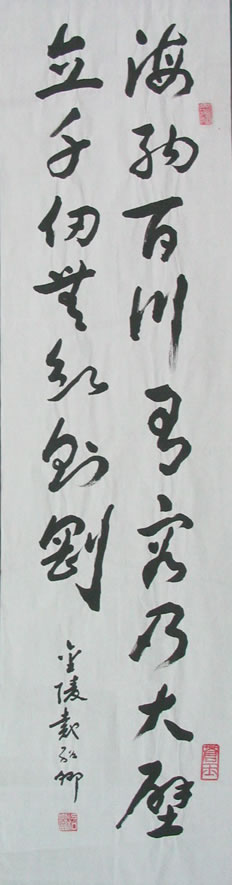 海納百川有容乃大壁
立千仞無欲則剛
金陵戴